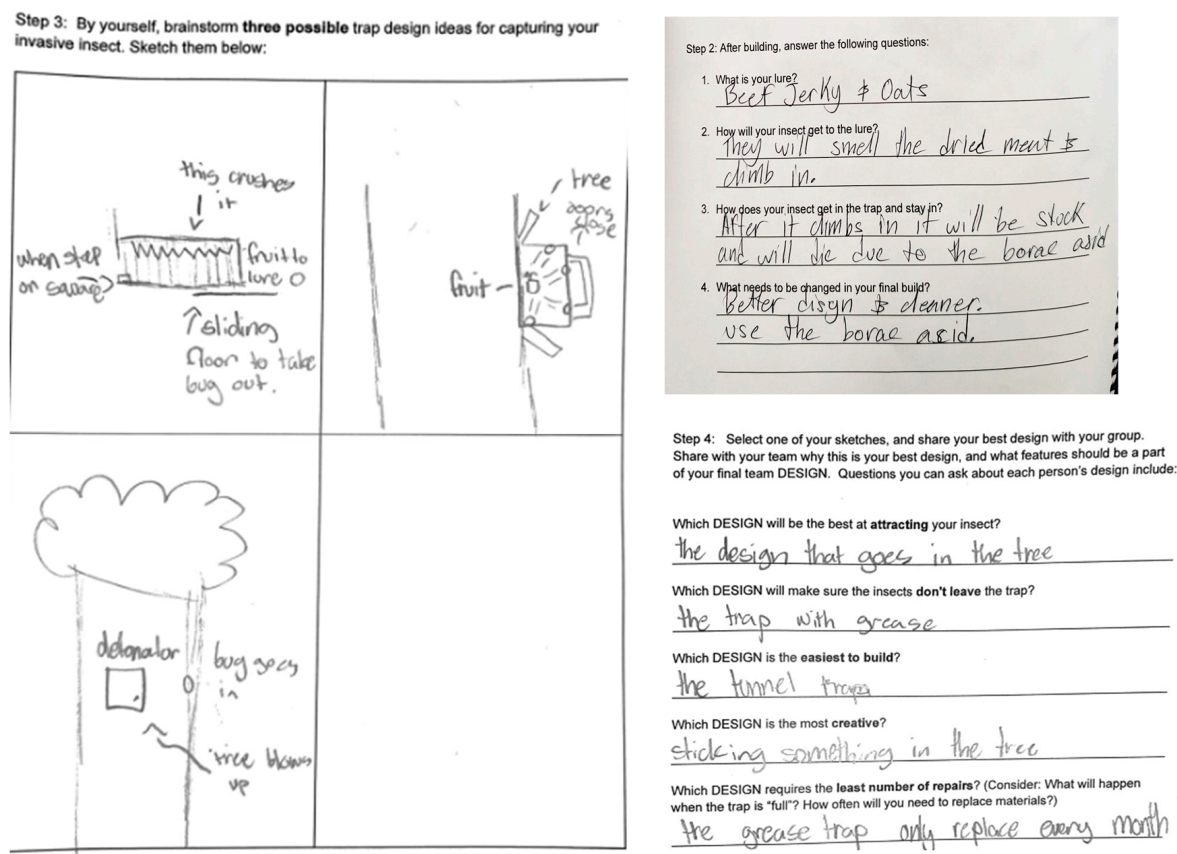 Step 3: By yourself, brainstorm three possible trap design ideas for capturing your
invasive insect. Sketch them below:
this crushes
it
when step
on square
fruit to
lure
sliding
floor to take
bug out.
tree
doors
close
fruit
detonator
bug goes
in
tree blows
up
Step 2: After building, answer the following questions:
1. What is your lure?
Beef Jerky & Oats
2. How will your insect get to the lure?
They will smell the dried meat &
climb in.
3. How does your insect get in the trap and stay in?
After it climbs in it will be stock
and will die due to the borae asid
4. What needs to be changed in your final build?
Better disgn & cleaner.
use the borae asid.
Step 4: Select one of your sketches, and share your best design with your group.
Share with your team why this is your best design, and what features should be a part
of your final team DESIGN. Questions you can ask about each person's design include:
Which DESIGN will be the best at attracting your insect?
the design that goes in the tree
Which DESIGN will make sure the insects don't leave the trap?
the trap with grease
Which DESIGN is the easiest to build?
the tunnel traps
Which DESIGN is the most creative?
sticking something in the tree
Which DESIGN requires the least number of repairs? (Consider: What will happen
when the trap is "full"? How often will you need to replace materials?)
the grease trap only replace every month